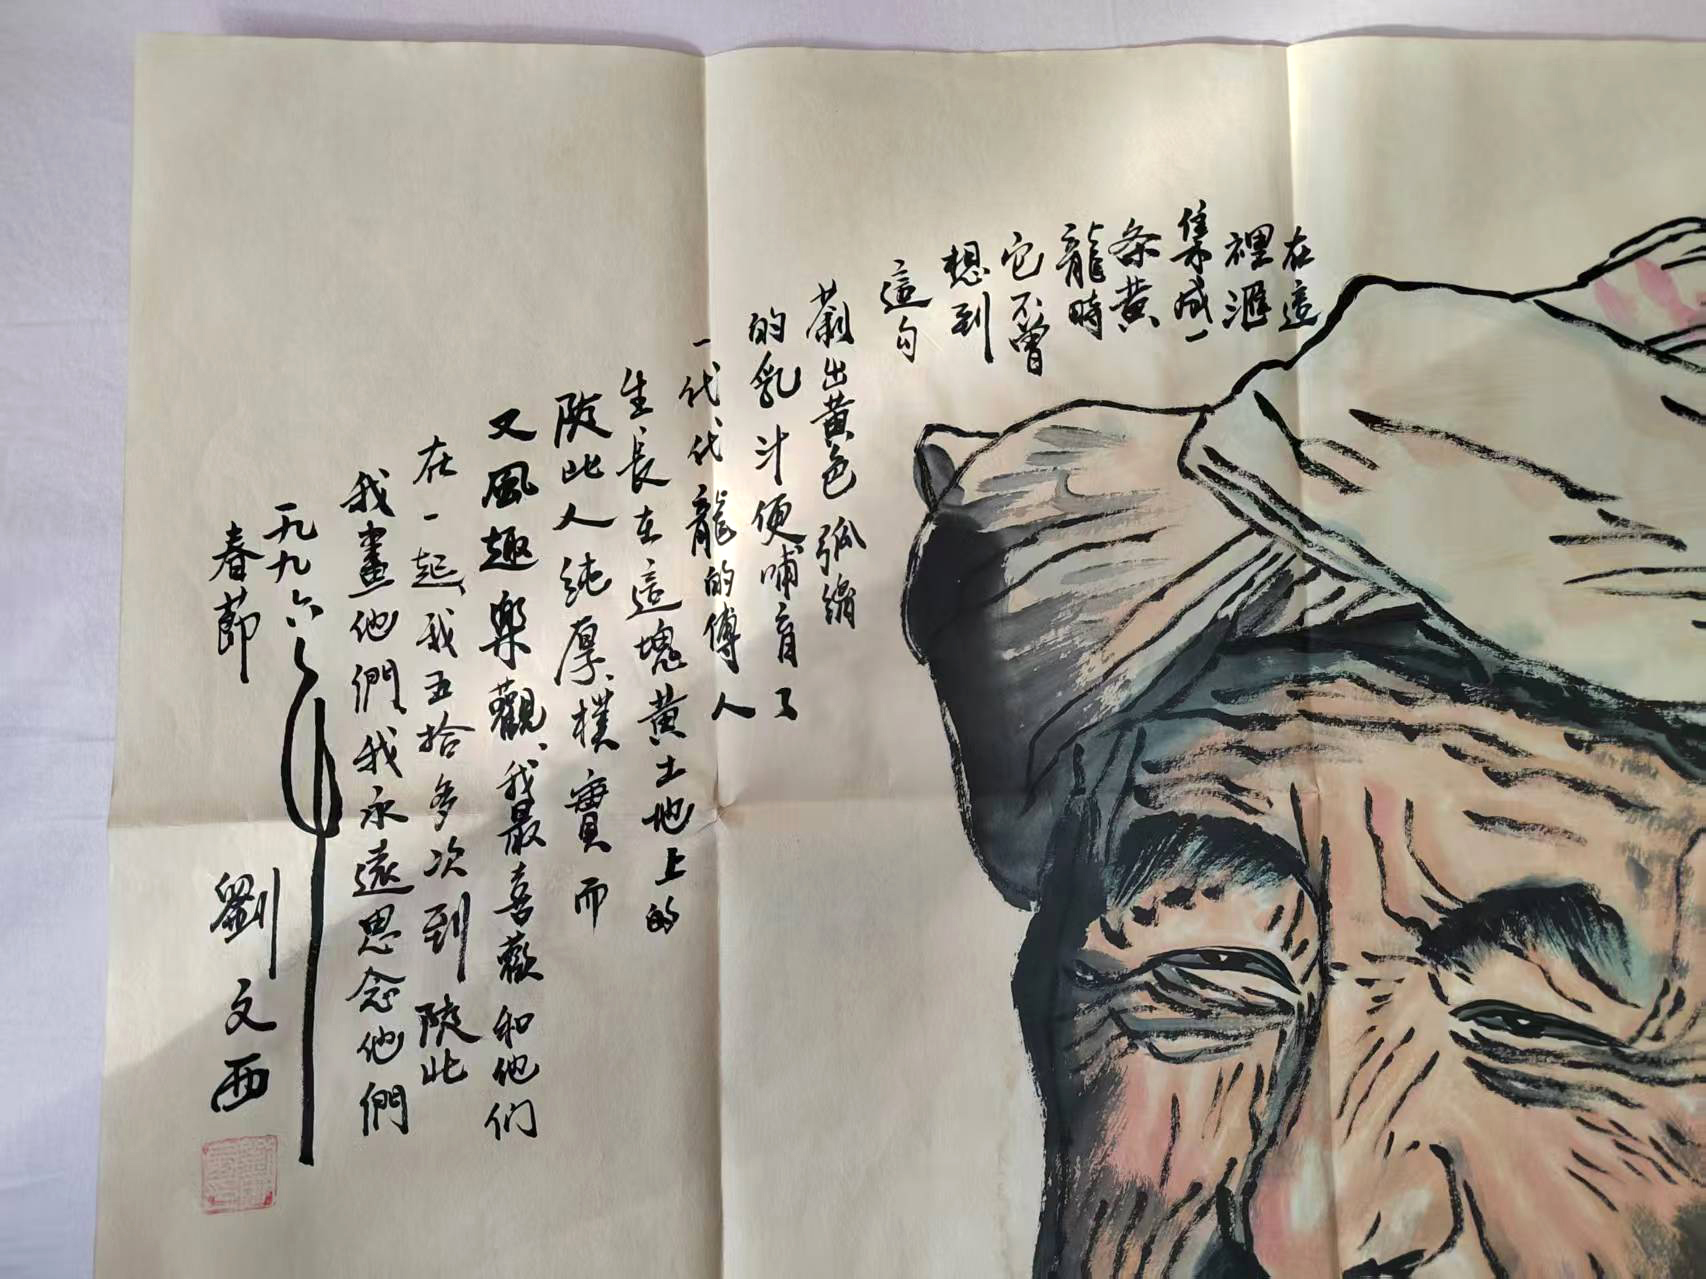 在這
裡滙
集成一
条黄
龍時
它不曾
想到
這勾
出黄色弧線
的乳汁便哺育了
一代代龍的傳人
生長在這塊黄土地上的
陕北人纯厚、樸實而
又風趣樂觀、我最喜歡和他们
在一起、我五拾多次到陕北
我畫他們我永遠思念他們
一九九六年
春節 劉文西